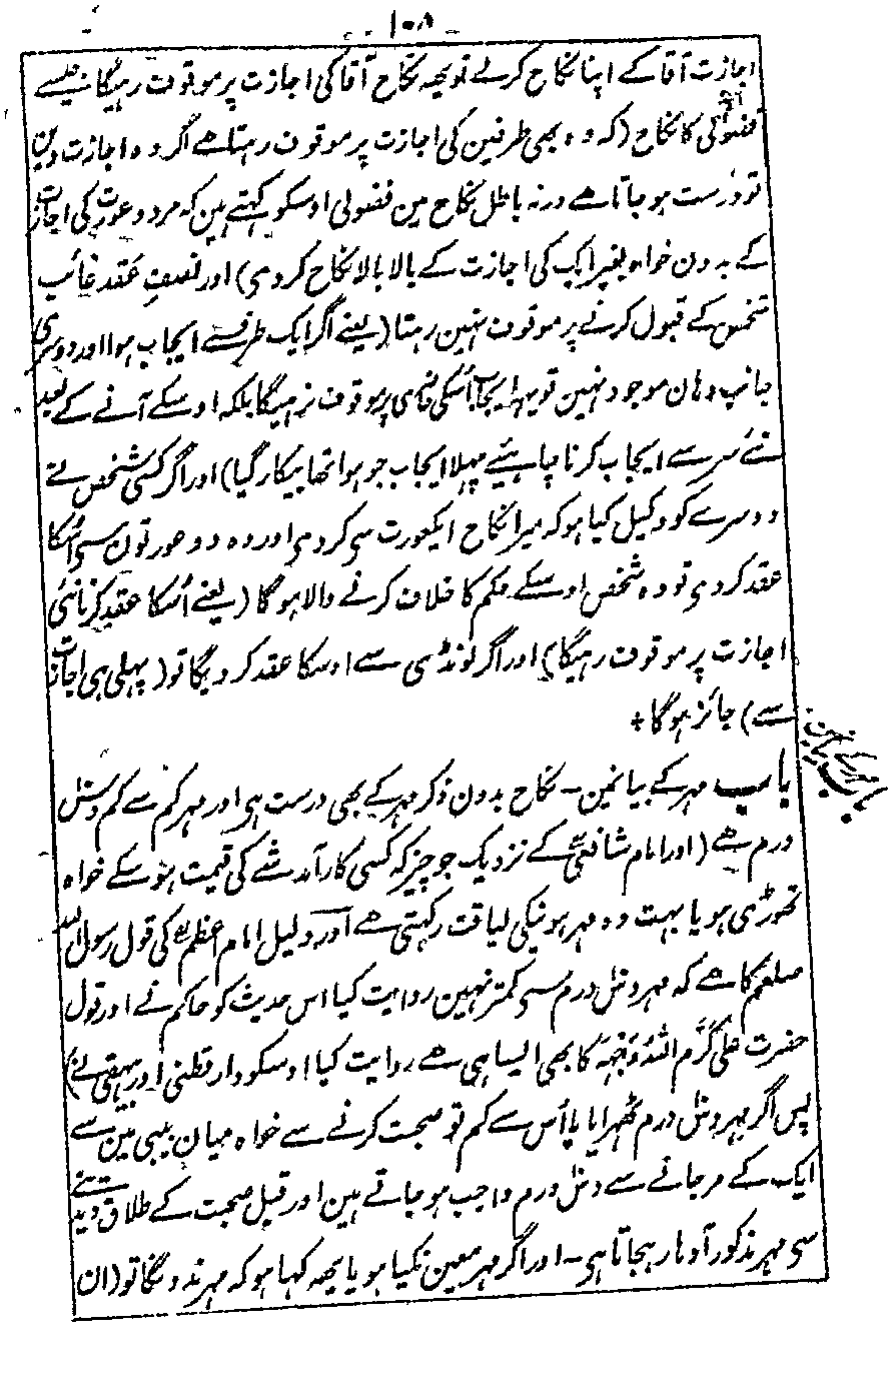 ۱۰۸
اجازت آقا کے اپنا نکاح کرلے تو یہہ نکاح آقا کی اجازت پر موقوف رہیگا جیسے
فضولی کا نکاح (کہ وہ بھی طرفین کی اجازت پر موقوف رہتا ہے اگر وہ اجازت دین
تو درست ہو جاتا ہے ورنہ باطل نکاح مین فضولی اوسکو کہتے ہین کہ مرد و عورت کی اجازت
کے بدون خواہ بغیر ایک کی اجازت کے بالا بالا نکاح کر دی) اور نصف عقد غائب
شخص کے قبول کرنے پر موقوف نہین رہتا (یعنے اگر ایک طرف سے ایجاب ہوا اور دوسری
جانب وہان موجود نہین تو یہہ ایجاب اُسکی پر موقوف نرہیگا بلکہ اوسکے آنے کے بعد
نئے سر سے ایجاب کرنا چاہیئے پہلا ایجاب جو ہوا تھا بیکار گیا) اور اگر کسی شخص نے
دوسرے کو وکیل کیا ہو کہ میرا نکاح ایکعورت سی کر دی اور وہ دو عورتون سی اُسکا
عقد کر دی تو وہ شخص اوسکے حکم کا خلاف کرنے والا ہوگا (یعنے اُسکا عقد کرنا نئی
اجازت پر موقوف رہیگا) اور اگر لونڈی سے اوسکا عقد کر دیگا تو (پہلی ہی اجازت
سے) جائز ہوگا +
باب مہر کے بیانمین - نکاح بدون ذکر مہر کے بھی درست ہی اور مہر کم سے کم دس
درم ہے (اور امام شافعیؒ کے نزدیک جو چیز کہ کسی کارآمد شے کی قیمت ہو سکے خواہ
تھوڑی ہو یا بہت وہ مہر ہونیکی لیاقت رکہتی ہے اور دلیل امام اعظمؒ کی قول رسول اللہ
صلعم کا ہے کہ مہر دس درم سی کمتر نہین روایت کیا اس حدیث کو حاکم نے اور قول
حضرت علی کَرَّم اللہُ وَجْہَہٗ کا بھی ایسا ہی ہے روایت کیا اوسکو دارقطنی اور بیہقی نے)
پس اگر مہر دس درم ٹھہرایا یا اُس سے کم تو صحبت کرنے سے خواہ میان بیبی مین سے
ایک کے مرجانے سے دس درم واجب ہو جاتے ہین اور قبل صحبت کے طلاق دینے
سی مہر مذکور آدہا رہجاتا ہی - اور اگر مہر معین نکیا ہو یا یہہ کہا ہو کہ مہر ندونگا تو (ان